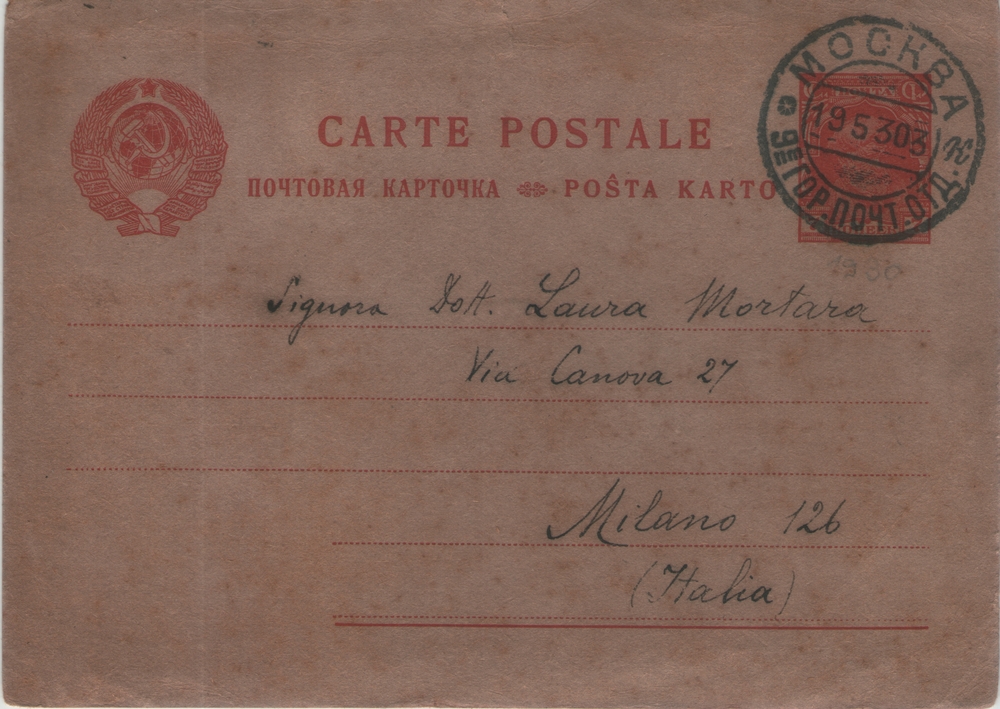 CARTE POSTALE
ПОЧТОВАЯ КАРТОЧКА POŜTA KARTO
МОСКВА
19 5 30 3
К
9Е ГОР. ПОЧТ. ОТД.
1930
Signora Dott. Laura Mortara
Via Canova 27
Milano 126
(Italia)